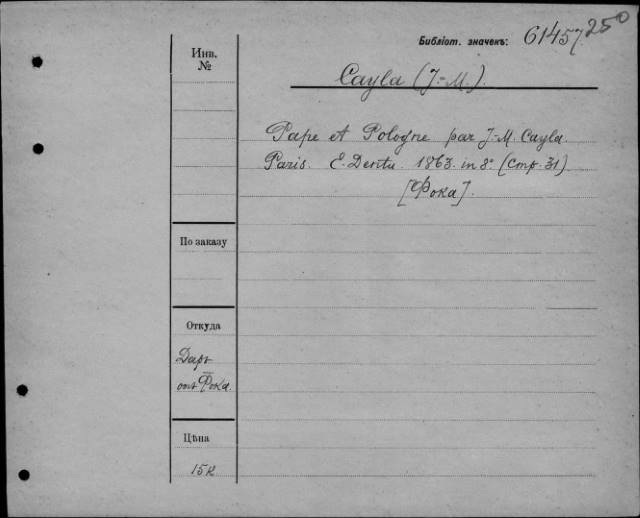 Библіот. значекъ: 61457.250
Инв.
№
Cayla (J-M.).
Pape et Pologne par J-M. Cayla.
Paris. E. Dentu. 1863. in 8° (стр. 31)
[Фока].
По заказу
Откуда
Даръ
отъ Фока.
Цѣна
15к